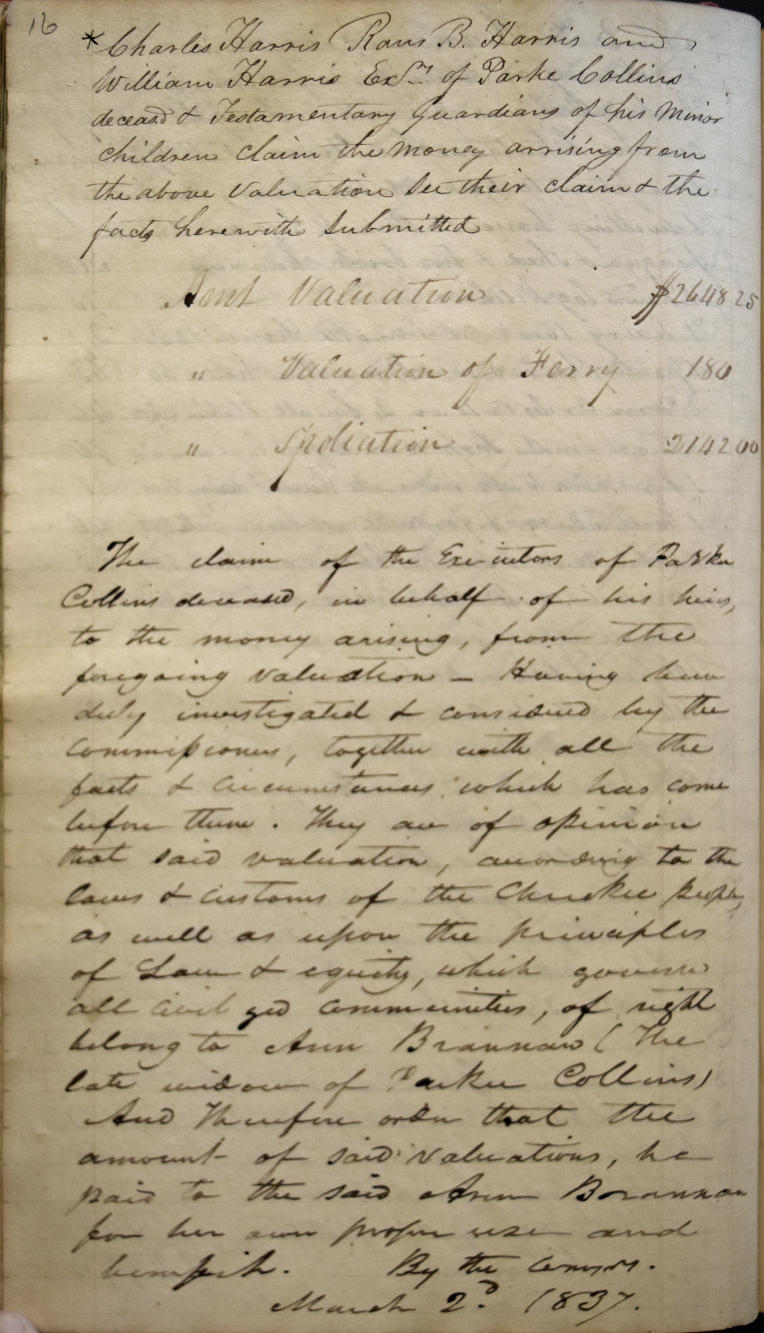 16
* Charles Harris Rans B. Harris and
William Harris Exrs of Parke Collins
deceasd & Testamentary Guardians of his minor
children claim the money arrising from
the above valuation see their claim & the
facts herewith submitted
Amt Valuation $2648 25
" Valuation of Ferry 180
" Spoliation 2142 00
The claim of the Executors of Parker
Collins deceased, in behalf of his heirs,
to the money arising, from the
foregoing valuation – Having been
duly investigated & considered by the
commissioners, together with all the
facts & circumstances which has come
before them. They are of opinion
that said valuation, according to the
laws & customs of the Cherokee people,
as well as upon the principles
of Law & equity, which govern
all civilized communities, of right
belong to Ann Brannan (The
late widow of Parker Collins)
And Therefore order that the
amount of said valuations, be
paid to the said Ann Brannan
for her own proper use and
benefit. By the Comrs.
March 2d. 1837.